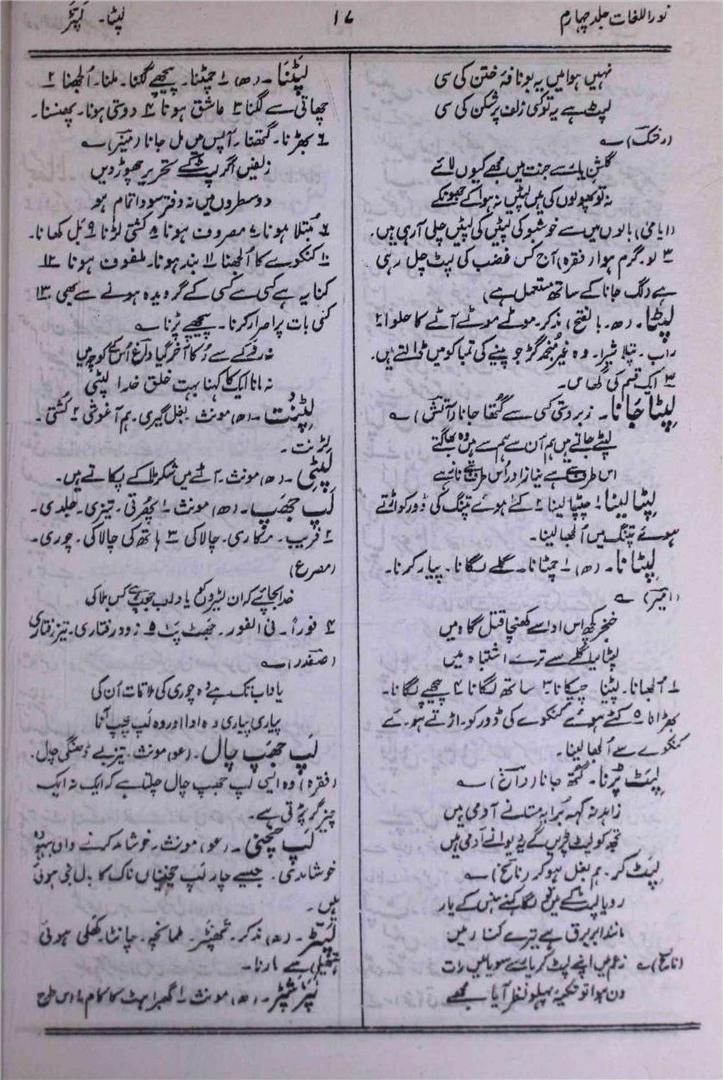 نور اللغات جلد چہارم
۱۷
لپٹا۔ لپّڑ
نہیں ہوا میں یہ بو نافۂ ختن کی سی
لپٹ ہے یہ تو کسی زلف پر شکن کی سی
(رشک) ؎
گلشن یار سے جنت میں مجھے کیوں لائے
نہ تو پھولوں کی ہیں لپٹیں نہ ہوا کے جھونکے
(ایامیٰ) بالوں میں سے خوشبو کی لپٹیں کی لپٹیں چلی آرہی ہیں۔
۳ لو۔ گرم ہوا (فقرہ) آج کس غضب کی لپٹ چل رہی
ہے (لگ جانا کے ساتھ مستعمل ہے)
لپٹا۔ (ھ۔ بالفتح) مذکر۔ موٹے موٹے آٹے کا حلوا ۲
راب۔ پتلا شیرا۔ وہ غیر منجمد گڑ جو پینے کی تمباکو میں ڈالتے ہیں۔
۳ ایک قسم کی گھاس۔
لپٹا جانا۔ زبردستی کسی سے گتھا جانا (آتش) ؎
لپٹے جاتے ہیں ہم ان سے ہم سے ہیں وہ بھاگتے
اس طرف ہے نیاز اور اس طرف ناز ہے
لپٹا لینا ۱ چپٹا لینا ۲ کٹے ہوئے پتنگ کی ڈور کو اڑتے
ہوئے پتنگ میں الجھا لینا۔
لپٹانا۔ (ھ) ۱ چمٹانا۔ گلے لگانا۔ پیار کرنا۔
(امیر) ؎
خنجر کچھ اس ادا سے کھنچا قتل گاہ میں
لپٹا لیا گلے سے ترے اشتباہ میں
۱ الجھانا۔ لپٹنا چپکانا ۳ ساتھ لگانا ۴ پیچھے لگانا۔
بھڑانا ۵ کٹے ہوئے کنکوے کی ڈور کو اڑتے ہوئے
کنکوے سے الجھا لینا۔
لپٹ پڑنا۔ گتھ جانا (داغ) ؎
زاہد نہ کہہ برا یہ مستانے آدمی ہیں
تجھ کو لپٹ پڑیں گے دیوانے آدمی ہیں
لپٹ کر۔ ہم بغل ہو کر (ناسخ) ؎
رویا لپٹ کے میں تو لگا کہنے ہنس کے یار
مانند ابر برق ہے تیرے کنار میں
(ناسخ) ؎ زعم میں اپنے لپٹ کر یار سے سویا میں رات
دن ہوا تو تکیۂ پہلو نظر آیا مجھے
لپٹنا۔ (ھ) ۱ چمٹنا۔ پیچھے لگنا۔ ملنا۔ الجھنا ۲
چھاتی سے لگنا ۳ عاشق ہونا ۴ دوستی ہونا۔ پھنسنا۔
۶ بھڑنا۔ گتھنا۔ آپس میں مل جانا (منیر) ؎
زلفیں اگر لپٹ کے تحریر چھوڑ دیں
دو سطروں میں نہ دفتر سودا تمام ہو
۶ مبتلا ہونا ۷ مصروف ہونا ۸ کشتی لڑنا ۹ بل کھانا۔
۱۰ کنکوے کا الجھنا ۱۱ بند ہونا۔ ملفوف ہونا ۱۲
کنایہ ہے کسی سے کسی کے گرویدہ ہونے سے بھی ۱۳
کسی بات پر اصرار کرنا۔ پیچھے پڑنا ؎
نہ روکے سے رکا آخر گیا داغ اس کے کوچہ میں
نہ مانا ایک کا کہنا بہت خلق خدا لپٹی
لپٹنت۔ (ھ) مونث۔ بغل گیری۔ ہم آغوشی ۲ کشتی۔
لڑنت۔
لپٹی۔ (ھ) مونث۔ آٹے میں شکر ملا کے پکاتے ہیں۔
لپ جھپ۔ (ھ) مونث۔ ۱ پھرتی۔ تیزی۔ جلدی۔
۲ فریب۔ مکاری۔ چالاکی ۳ ہاتھ کی چالاکی۔ چوری۔
(مصرع)
خدا بچائے کہ ان لٹیروں کو یاد لپ جھپ کس بلا کی
۴ فوراً۔ فی الفور۔ جھٹ پٹ ۵ زود رفتاری۔ تیز رفتاری
(صفدر) ؎
یاد اب تک ہے وہ چوری کی ملاقات ان کی
پیاری پیاری وہ ادا اور وہ لپ جھپ آنا
لپ جھپ چال۔ (عو) مونث۔ تیز بے ڈھنگی چال۔
(فقرہ) وہ ایسی لپ جھپ چال چلتا ہے کہ ایک نہ ایک
چیز گر پڑتی ہے۔
لپ چخنی۔ (عو) مونث۔ خوشامد کرنے والی بیہودہ
خوشامدی۔ جیسے چار لپ چخنیاں ناک کا بال بنی ہوئی
ہیں۔
لپّڑ۔ (ھ) مذکر۔ تھپڑ۔ طمانچہ۔ چانٹا۔ کھلی ہوئی
ہتھیلی سے مارنا۔
لپڑ شپڑ۔ (ھ) مونث ۱ گھبراہٹ کا کام ۲ اس طرح